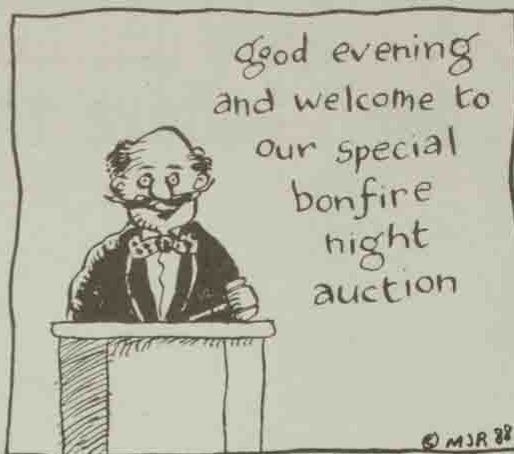 good evening
and welcome to
our special
bonfire
night
auction
© MJR 88